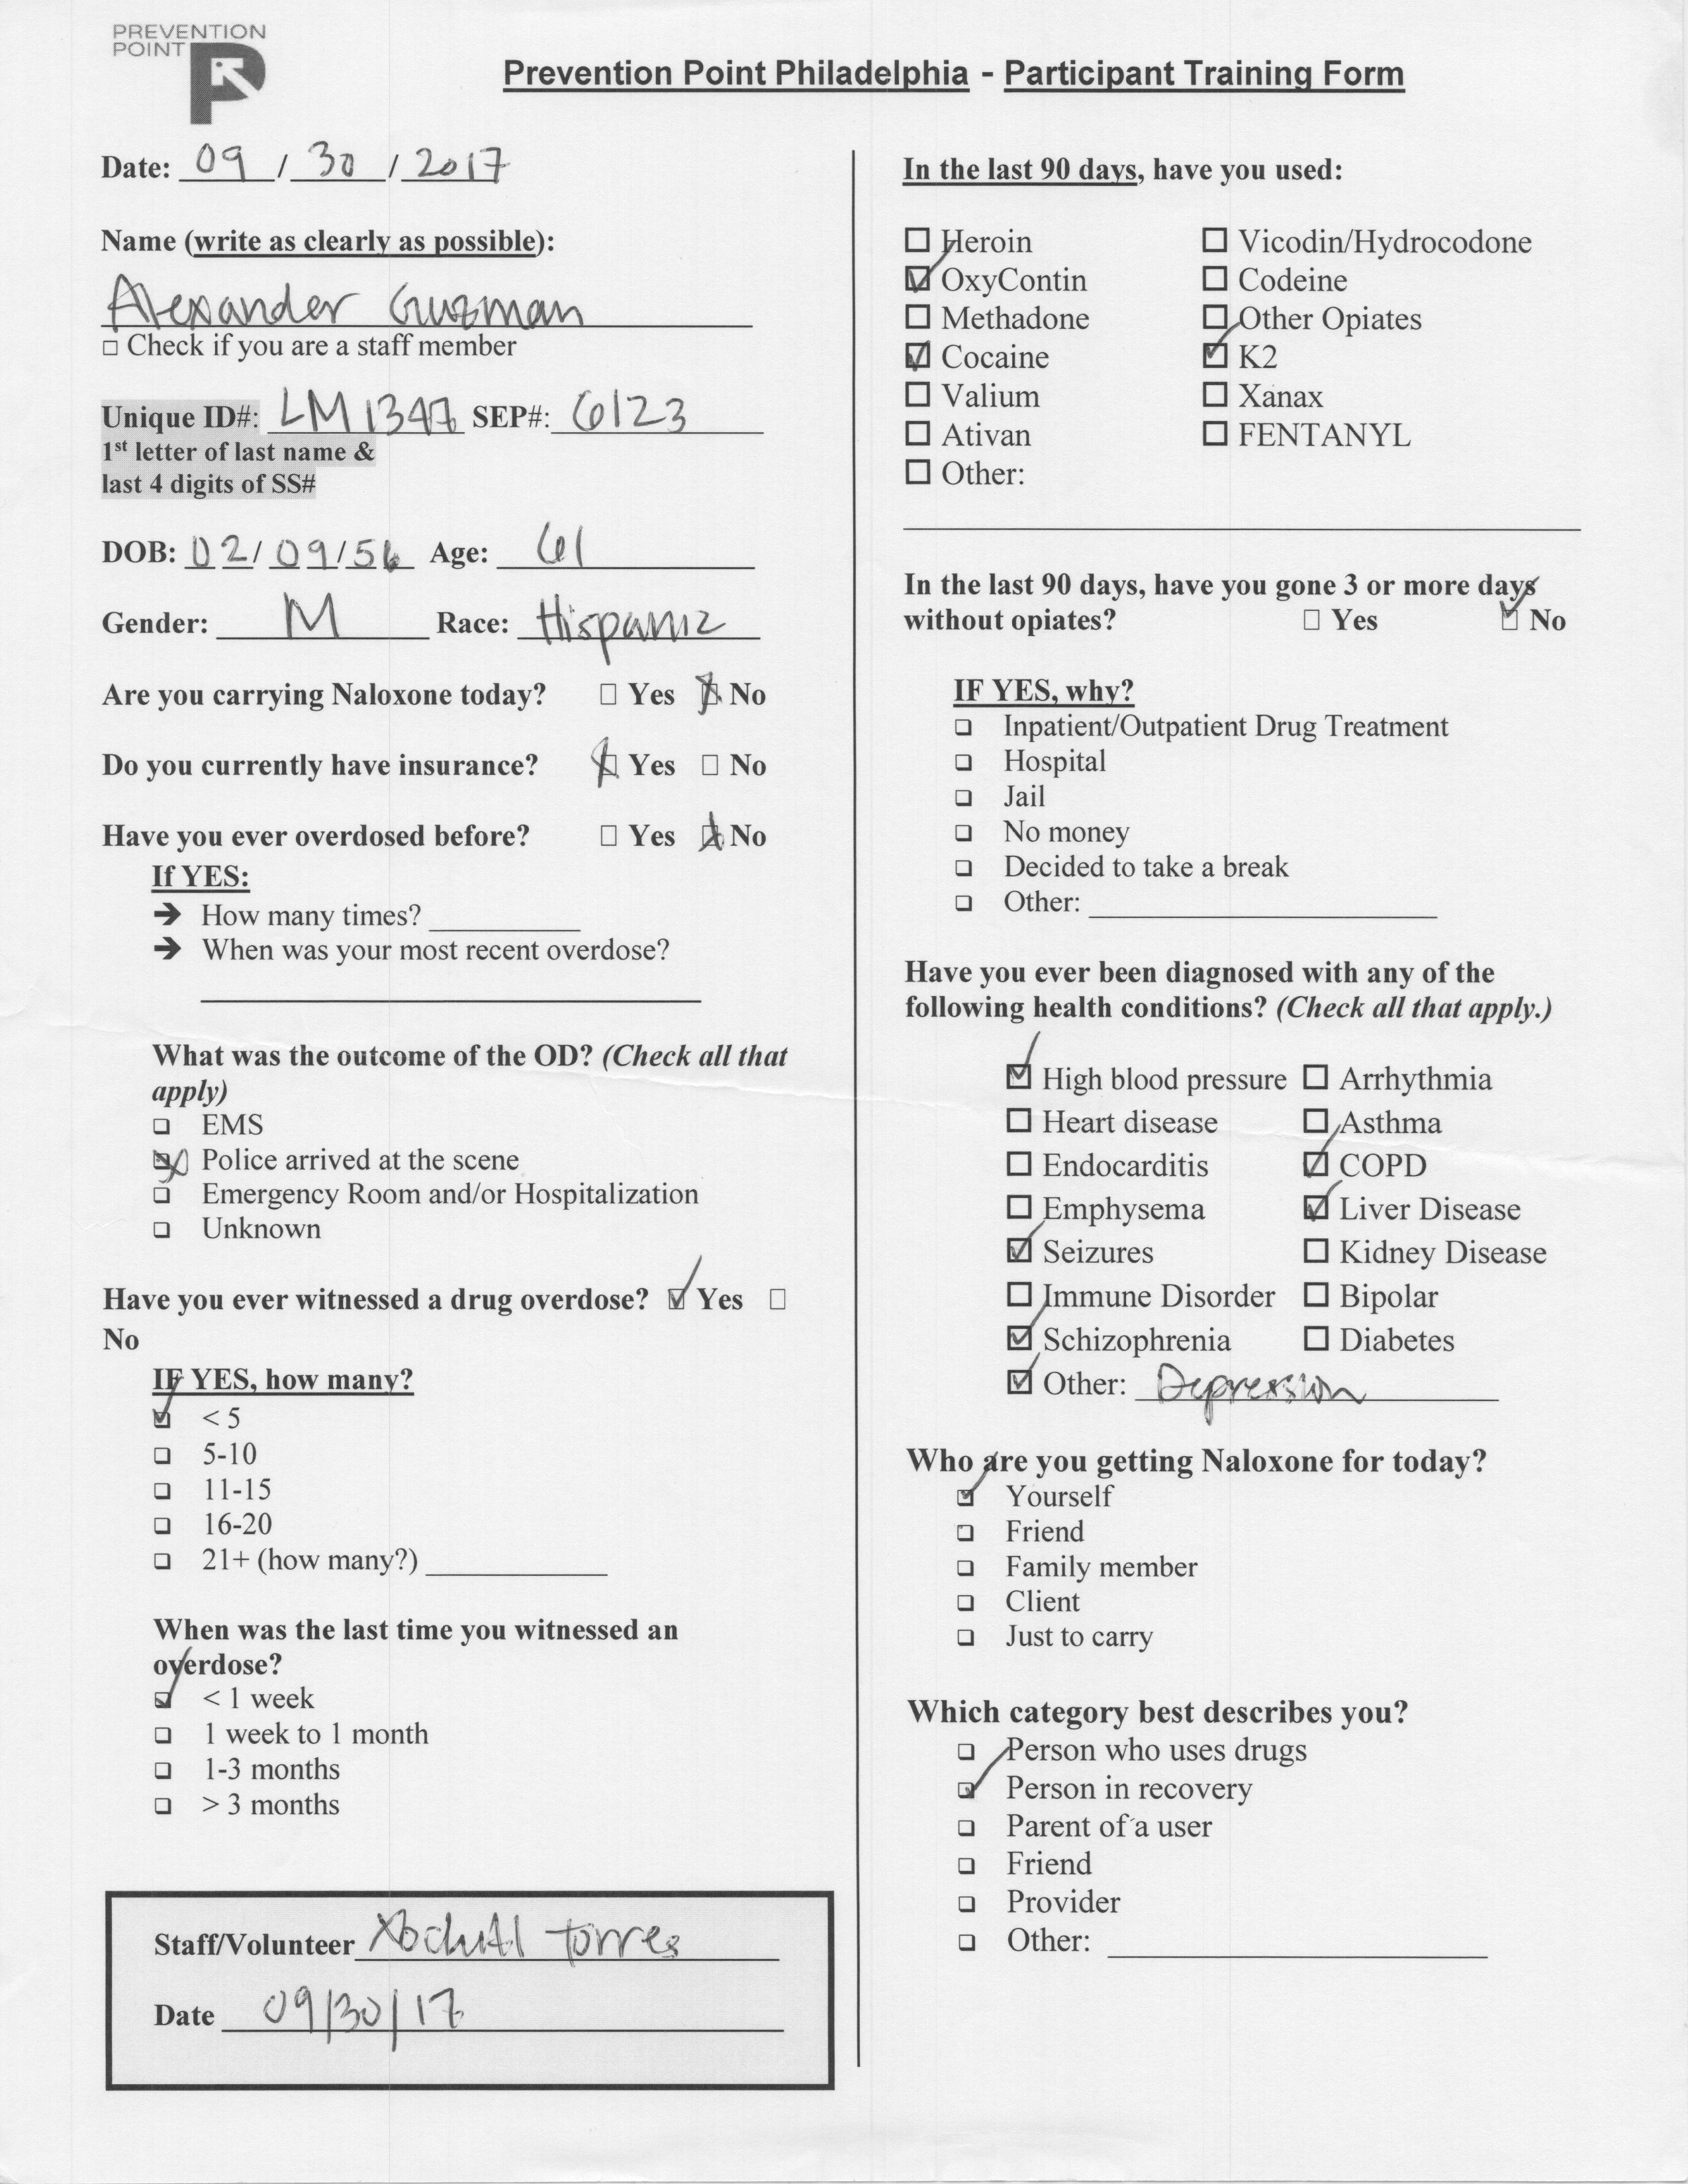 PREVENTION
POINT
Prevention Point Philadelphia - Participant Training Form
Date: 09 / 30 / 2017
Name (write as clearly as possible):
Alexander Guzman
☐ Check if you are a staff member
Unique ID#: LM1347 SEP#: 6123
1st letter of last name &
last 4 digits of SS#
DOB: 02/09/56 Age: 61
Gender: M Race: Hispanic
Are you carrying Naloxone today? ☐ Yes ☒ No
Do you currently have insurance? ☒ Yes ☐ No
Have you ever overdosed before? ☐ Yes ☒ No
If YES:
➔ How many times?
➔ When was your most recent overdose?
What was the outcome of the OD? (Check all that
apply)
☐ EMS
☒ Police arrived at the scene
☐ Emergency Room and/or Hospitalization
☐ Unknown
Have you ever witnessed a drug overdose? ☑ Yes ☐
No
IF YES, how many?
☑ < 5
☐ 5-10
☐ 11-15
☐ 16-20
☐ 21+ (how many?)
When was the last time you witnessed an
overdose?
☑ < 1 week
☐ 1 week to 1 month
☐ 1-3 months
☐ > 3 months
Staff/Volunteer Xochitl Torres
Date 09/30/17
In the last 90 days, have you used:
☐ Heroin ☐ Vicodin/Hydrocodone
☑ OxyContin ☐ Codeine
☐ Methadone ☐ Other Opiates
☑ Cocaine ☑ K2
☐ Valium ☐ Xanax
☐ Ativan ☐ FENTANYL
☐ Other:
In the last 90 days, have you gone 3 or more days
without opiates? ☐ Yes ☑ No
IF YES, why?
☐ Inpatient/Outpatient Drug Treatment
☐ Hospital
☐ Jail
☐ No money
☐ Decided to take a break
☐ Other:
Have you ever been diagnosed with any of the
following health conditions? (Check all that apply.)
☑ High blood pressure ☐ Arrhythmia
☐ Heart disease ☐ Asthma
☐ Endocarditis ☑ COPD
☐ Emphysema ☑ Liver Disease
☑ Seizures ☐ Kidney Disease
☐ Immune Disorder ☐ Bipolar
☑ Schizophrenia ☐ Diabetes
☑ Other: Depression
Who are you getting Naloxone for today?
☑ Yourself
☐ Friend
☐ Family member
☐ Client
☐ Just to carry
Which category best describes you?
☐ Person who uses drugs
☑ Person in recovery
☐ Parent of a user
☐ Friend
☐ Provider
☐ Other: